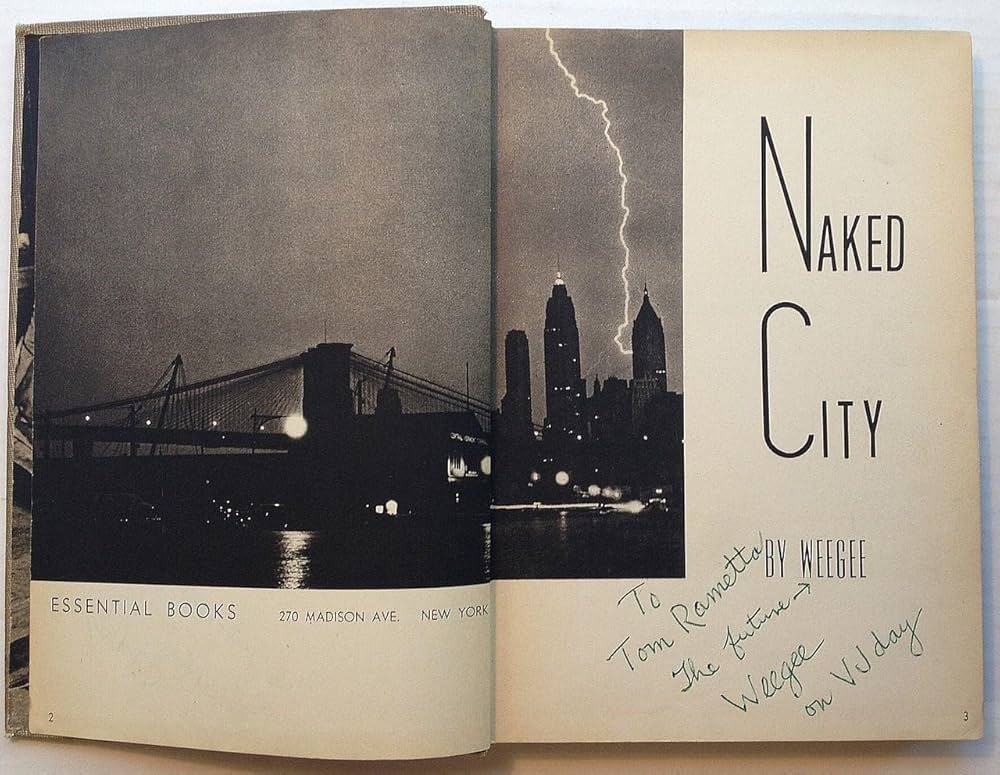 ESSENTIAL BOOKS 270 MADISON AVE. NEW YORK
2
NAKED
CITY
BY WEEGEE
To
Tom Rametta
The future →
Weegee
on VJ day
3